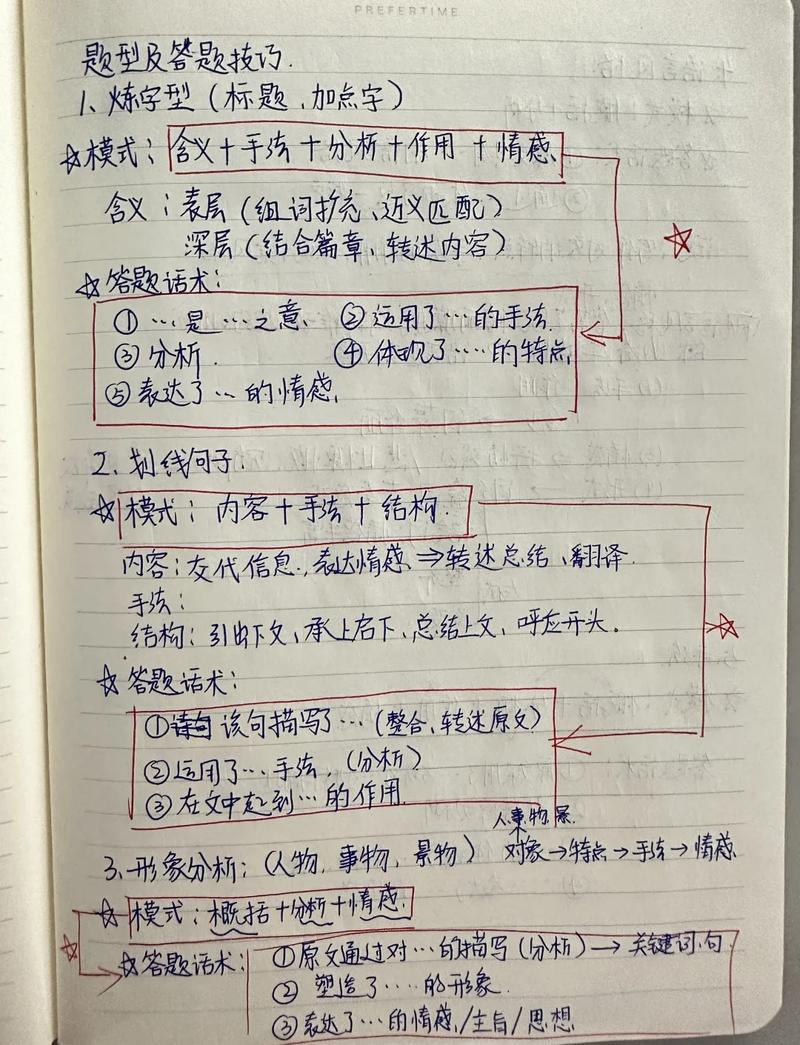 PREFERTIME
题型及答题技巧.
1、炼字型（标题、加点字）
☆模式：含义＋手法＋分析＋作用＋情感.
含义：表层（组词扩充、近义匹配）
深层（结合篇章、转述内容）
☆答题话术：
①…是…之意. ②运用了…的手法.
③分析. ④体现了….的特点.
⑤表达了…的情感.
2、划线句子：
☆模式：内容＋手法＋结构.
内容：交代信息、表达情感⇒转述总结、翻译.
手法：
结构：引出下文，承上启下、总结上文，呼应开头。
☆答题话术：
①该句描写了…（整合、转述原文）
②运用了…手法.（分析）
③在文中起到…的作用.
人.事.物.景.
3.形象分析：（人物，事物，景物） 对象→特点→手法→情感
☆模式：概括＋分析＋情感.
☆答题话术：①原文通过对…的描写（分析）→关键词、句.
②塑造了….的形象.
③表达了…的情感/主旨/思想